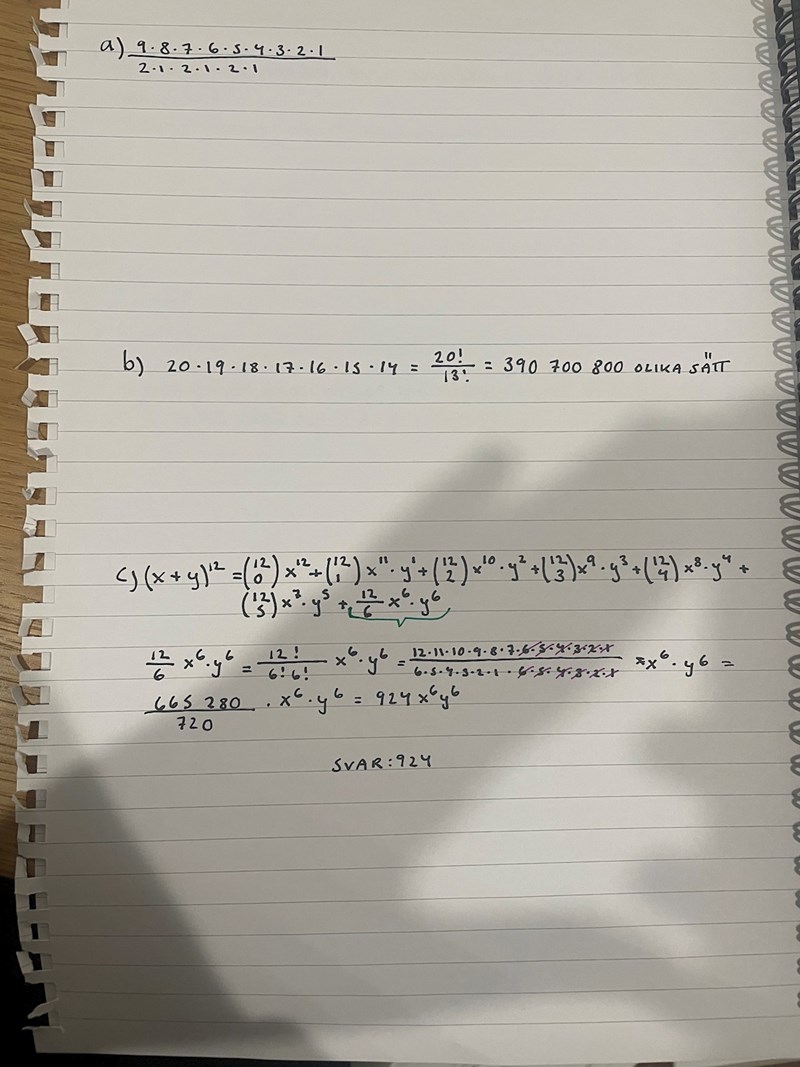 a) 9·8·7·6·5·4·3·2·1
2·1·2·1·2·1
b) 20·19·18·17·16·15·14 = 20!/13! = 390 700 800 OLIKA SÄTT
c) (x+y)¹² = (12 0) x¹² + (12 1) x¹¹·y¹ + (12 2) x¹⁰·y² + (12 3) x⁹·y³ + (12 4) x⁸·y⁴ +
(12 5) x⁷·y⁵ + 12/6 x⁶·y⁶
12/6 x⁶·y⁶ = 12!/6!6! x⁶·y⁶ = 12·11·10·9·8·7·6·5·4·3·2·1/6·5·4·3·2·1·6·5·4·3·2·1 · x⁶·y⁶ =
665 280/720 · x⁶·y⁶ = 924 x⁶y⁶
SVAR: 924